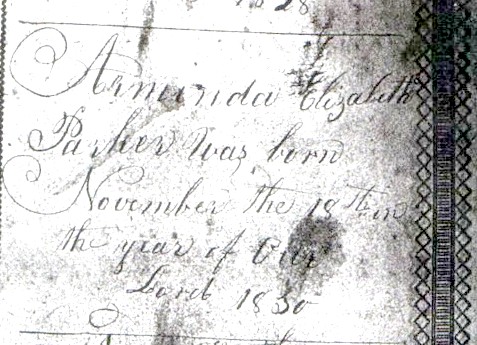 1828
Arminda Elizabeth
Parker Was born
November the 19th in
the year of Our
Lord 1830